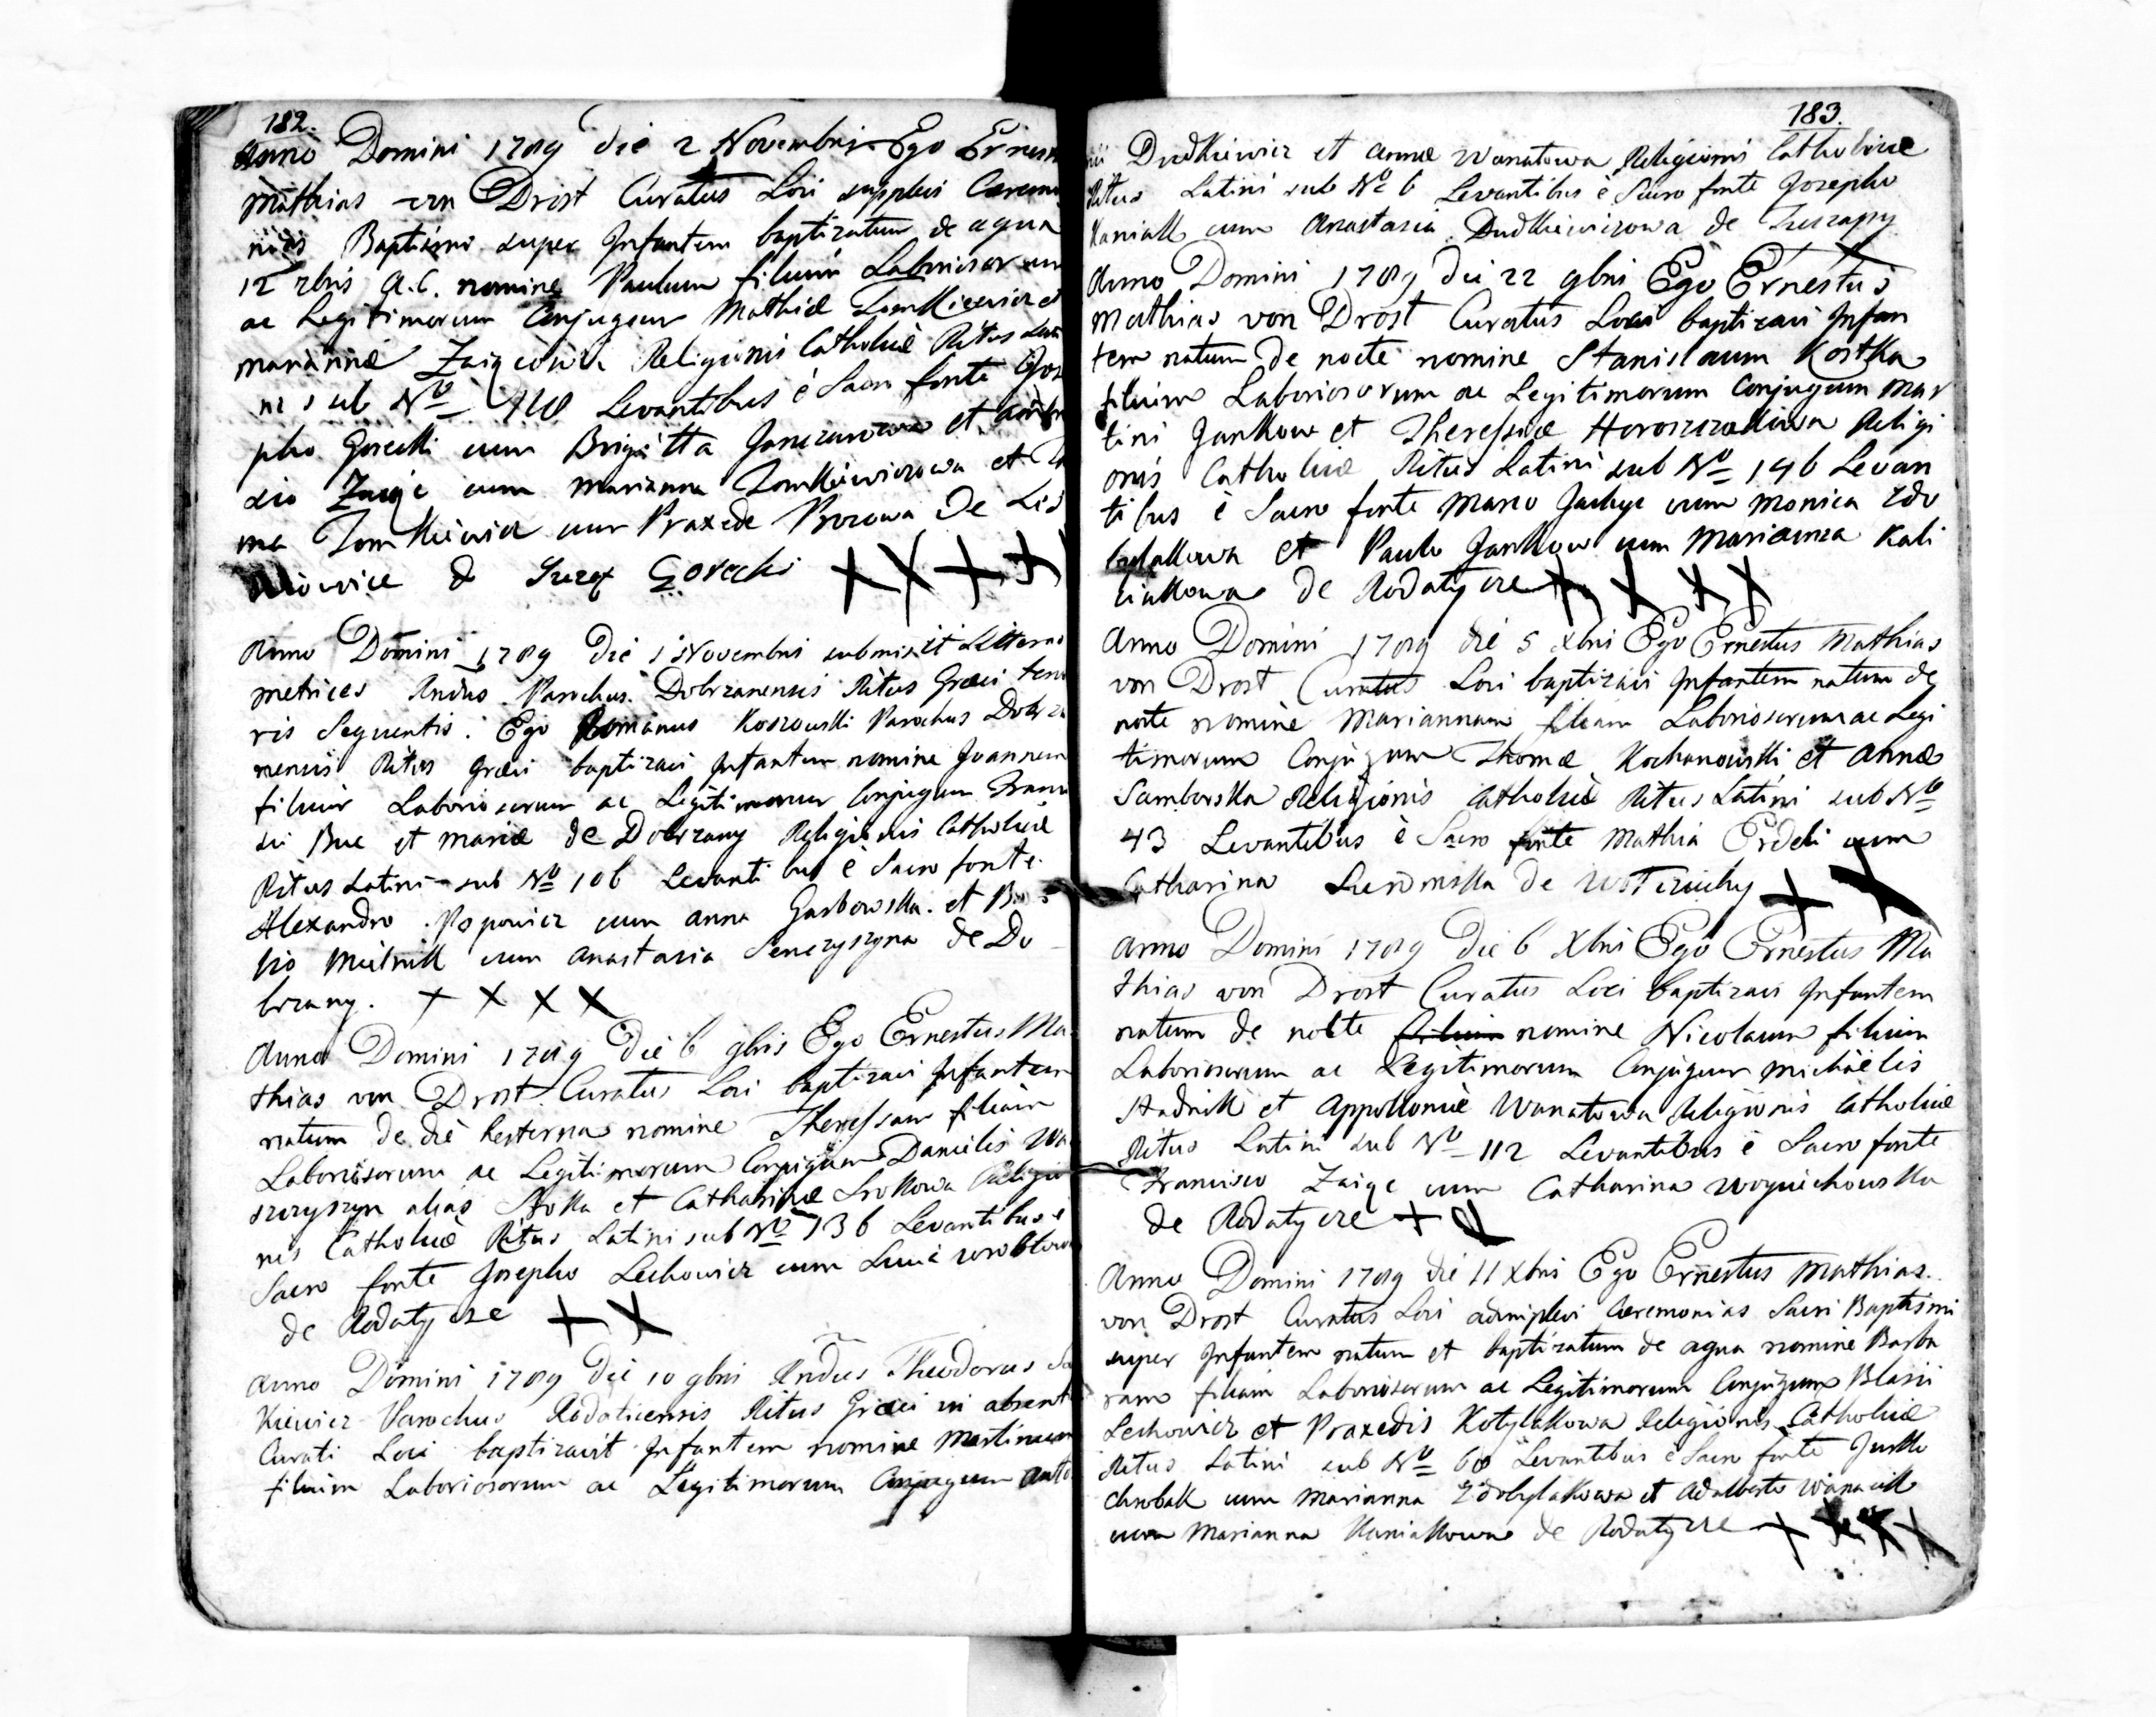 182.
Anno Domini 1789 die 2 Novembris Ego Ernest
Mathias von Drost Curatus Loci supplevi Ceremo
nias Baptismi super Infantem baptizatum de aqua
12 7bris a.c. nomine Paulum filium Laboriosorum
ac Legitimorum Conjugum Mathiæ Tomkiewicz et
Mariannæ Zaiącowa Religionis Catholicæ Ritus Lati
ni sub No Levantibus è Sacro fonte Jose
pho Gorecki cum Brigitta Janczurowa et
Zaiąc cum Marianna Tomkiewiczowa et
ma Tomkiewicz cum Praxede Brozowa de
Gorecki
Anno Domini 1789 die 1 Novembri submisit Litteras
metrices Rndus Parochus Dobrzanensis Ritus Græci teno
ris Sequentis. Ego Romanus Koszowski Parochus Dobrza
nensis Ritus Græci baptizavi Infantem nomine Joannem
filium Laboriosorum ac Legitimorum Conjugum Franci
sci Buc et Mariæ de Dobrzany Religionis Catholicæ
Ritus Latini sub No 106 Levantibus è Sacro fonte
Alexandro Popowicz cum Anna Garbowska et
Mielnik cum Anastasia Senczyszyna de Do
brzany.
Anno Domini 1789 die 6 9bris Ego Ernestus Ma
thias von Drost Curatus Loci baptizavi Infantem
natum de die hesterna nomine Theressam filiam
Laboriosorum ac Legitimorum Conjugum Danielis Wa
szczyszyn alias Sroka et Catharinæ Srokowa Religio
nis Catholicæ Ritus Latini sub No 136 Levantibus è
Sacro fonte Josepho Lechowicz cum Lucia Wroblowa
de Rodatycze
Anno Domini 1789 die 10 9bri Rndus Theodorus
kiewicz Parochus Rodaticensis Ritus Græci in absent
Curati Loci baptizavit Infantem nomine Martinum
filium Laboriosorum ac Legitimorum Conjugum Anto
183.
nii Dudkiewicz et Annæ Wanatowa Religionis Catholicæ
Ritus Latini sub No 6 Levantibus è Sacro fonte Josepho
Kaniak cum Anastasia Dudkiewiczowa de
Anno Domini 1789 die 22 9bri Ego Ernestus
Mathias von Drost Curatus Loci baptizavi Infan
tem natum de nocte nomine Stanislaum Kostka
filium Laboriosorum ac Legitimorum Conjugum Mar
tini Jankow et Theressiæ Horoszczakowa Religi
onis Catholicæ Ritus Latini sub No 146 Levan
tibus è Sacro fonte Marco cum Monica Zdo
bylakowa et Paulo Jankow cum Marianna Kali
ciakowa de Rodatycze
Anno Domini 1789 die 5 Xbri Ego Ernestus Mathias
von Drost Curatus Loci baptizavi Infantem natum de
nocte nomine Mariannam filiam Laboriosorum ac Legi
timorum Conjugum Thomæ Kochanowski et Annæ
Samborska Religionis Catholicæ Ritus Latini sub No
43 Levantibus è Sacro fonte Mathia Erdeli cum
Catharina de
Anno Domini 1789 die 6 Xbri Ego Ernestus Ma
thias von Drost Curatus Loci baptizavi Infantem
natum de nocte filium nomine Nicolaum filium
Laboriosorum ac Legitimorum Conjugum Michaelis
Stadnik et Appolloniæ Wanatowa Religionis Catholicæ
Ritus Latini sub No 112 Levantibus è Sacro fonte
Francisco Zaiąc cum Catharina Woyciechowska
de Rodatycze
Anno Domini 1789 die 11 Xbris Ego Ernestus Mathias
von Drost Curatus Loci adimplevi Cæremonias Sacri Baptismi
super Infantem natum et baptizatum de aqua nomine Barba
ram filiam Laboriosorum ac Legitimorum Conjugum Blasii
Lechowicz et Praxedis Kotylakowa Religionis Catholicæ
Ritus Latini sub No 60 Levantibus è Sacro fonte
Chrobak cum Marianna Zdobylakowa et Adalberto
cum Marianna Kaniakowa de Rodatycze